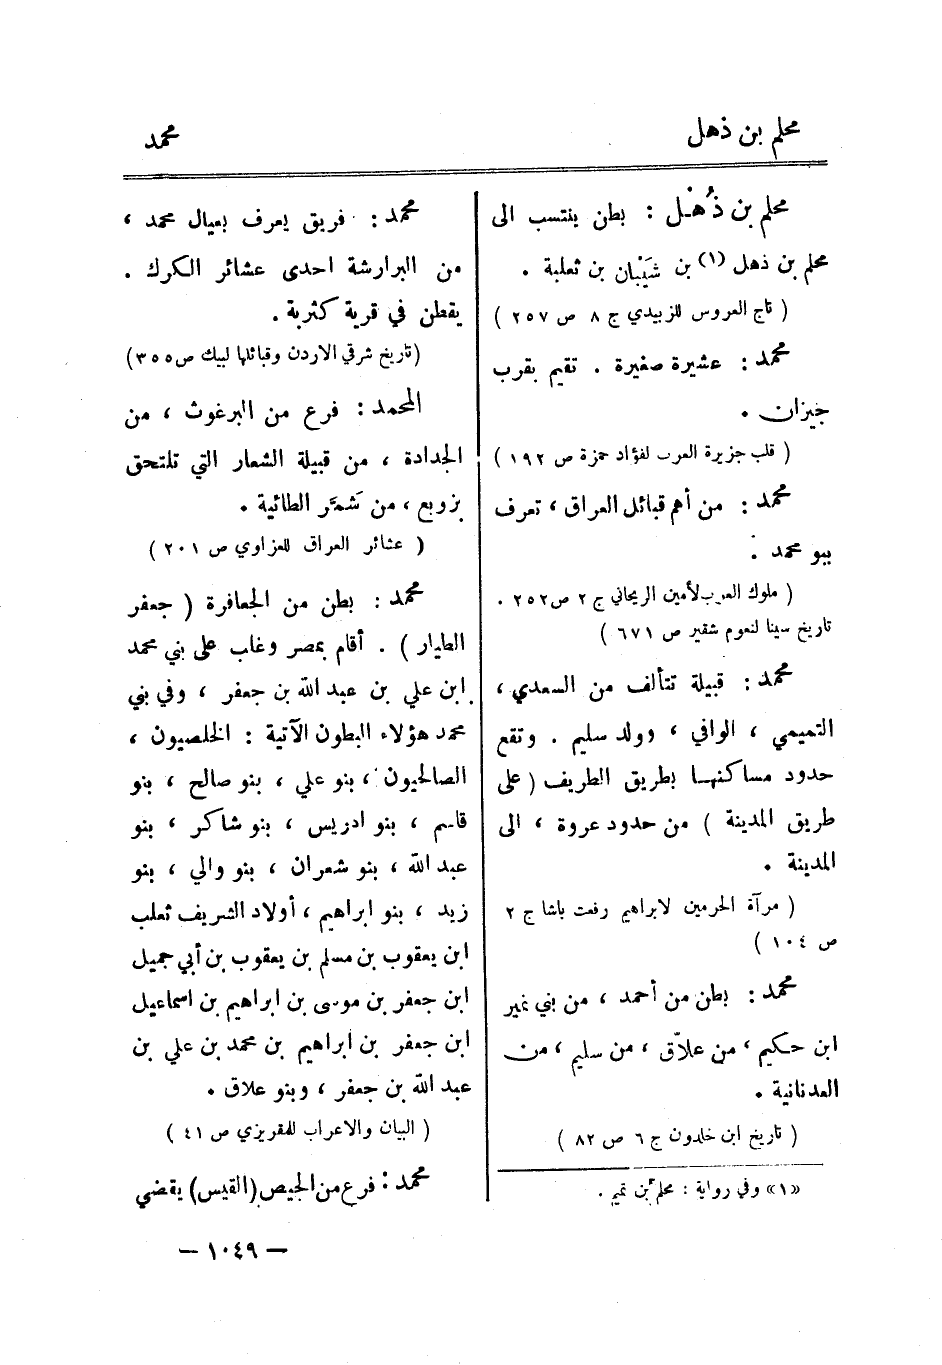 محلم بن ذهل
محمد
محلم بن ذُهْل : بطن ينتسب الى
محلم بن ذهل (١) بن شَيْبَان بن ثعلبة .
( تاج العروس للزبيدي ج ٨ ص ٢٥٧ )
محمد : عشيرة صغيرة . تقيم بقرب
جيزان .
( قلب جزيرة العرب لفؤاد حمزة ص ١٩٢ )
محمد : من أهم قبائل العراق ، تعرف
ببو محمد .
( ملوك العرب لأمين الريحاني ج ٢ ص ٢٥٢ .
تاريخ سينا لنعوم شقير ص ٦٧١ )
محمد : قبيلة تتألف من السعدي ،
التميمي ، الوافي ، وولد سليم . وتقع
حدود مساكنها بطريق الطريف ( على
طريق المدينة ) من حدود عروة ، الى
المدينة .
( مرآة الحرمين لابراهيم رفعت باشا ج ٢
ص ١٠٤ )
محمد : بطن من أحمد ، من بني نمير
ابن حكيم ، من علاّق ، من سليم ، من
العدنانية .
( تاريخ ابن خلدون ج ٦ ص ٨٢ )
«١» وفي رواية : محلم بن تميم .
محمد : فريق يعرف بعيال محمد ،
من البرارشة احدى عشائر الكرك .
يقطن في قرية كثربة .
(تاريخ شرقي الاردن وقبائلها لبيك ص ٣٥٥)
المحمد : فرع من البرغوث ، من
الجدادة ، من قبيلة الشعار التي تلتحق
بزوبع ، من شَمَّر الطائية .
( عشائر العراق للعزاوي ص ٢٠١ )
محمد : بطن من الجعافرة ( جعفر
الطيار ) . أقام بمصر وغاب على بني محمد
ابن علي بن عبد الله بن جعفر ، وفي بني
محمد هؤلاء البطون الآتية : الخلصيون ،
الصالحيون ، بنو علي ، بنو صالح ، بنو
قاسم ، بنو ادريس ، بنو شاكر ، بنو
عبد الله ، بنو شعران ، بنو والي ، بنو
زيد ، بنو ابراهيم ، أولاد الشريف ثعلب
ابن يعقوب بن مسلم بن يعقوب بن أبي جميل
ابن جعفر بن موسى بن ابراهيم بن اسماعيل
ابن جعفر بن ابراهيم بن محمد بن علي بن
عبد الله بن جعفر ، وبنو علاق .
( البيان والاعراب للمقريزي ص ٤١ )
محمد : فرع من الجيص (القيس) يقضي
— ١٠٤٩ —